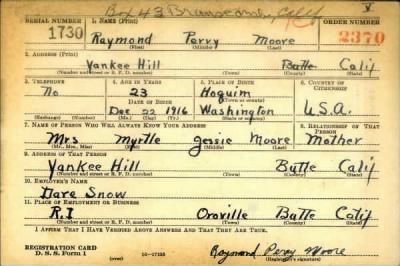 Box 43 Branscomb, Calif V
SERIAL NUMBER 1. NAME (Print) ORDER NUMBER
1730 Raymond Perry Moore 2370
(First) (Middle) (Last)
2. ADDRESS (Print)
Yankee Hill Butte Calif
(Number and street or R. F. D. number) (Town) (County) (State)
3. TELEPHONE 4. AGE IN YEARS 5. PLACE OF BIRTH 6. COUNTRY OF CITIZENSHIP
No 23 Hoquim
DATE OF BIRTH (Town or county)
Dec 22 1916 Washington U.S.A.
(Exchange) (Number) (Mo.) (Day) (Yr.) (State or country)
7. NAME OF PERSON WHO WILL ALWAYS KNOW YOUR ADDRESS 8. RELATIONSHIP OF THAT PERSON
Mrs Myrtle Jessie Moore Mother
(Mr., Mrs., Miss) (First) (Middle) (Last)
9. ADDRESS OF THAT PERSON
Yankee Hill Butte Calif
(Number and street or R. F. D. number) (Town) (County) (State)
10. EMPLOYER'S NAME
Dare Snow
11. PLACE OF EMPLOYMENT OR BUSINESS
R.I Oroville Butte Calif
(Number and street or R. F. D. number) (Town) (County) (State)
I AFFIRM THAT I HAVE VERIFIED ABOVE ANSWERS AND THAT THEY ARE TRUE.
REGISTRATION CARD
D. S. S. Form 1 (over) Raymond Perry Moore